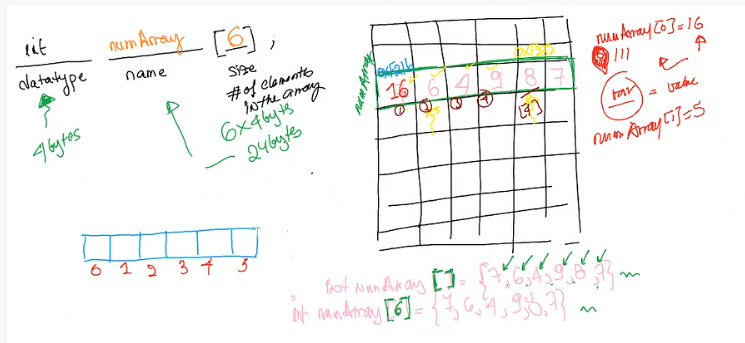 int numArray [6];
datatype name size
# of elements
in the array
4 bytes
6x4byts
24bytes
0 1 2 3 4 5
numArray
16 6 4 9 8 7
[4]
numArray[0]=16
111
var = value
numArray[1]=5
int numArray [] = {7,6,4,9,8,7}
int numArray [6] = {7,6,4,9,8,7}